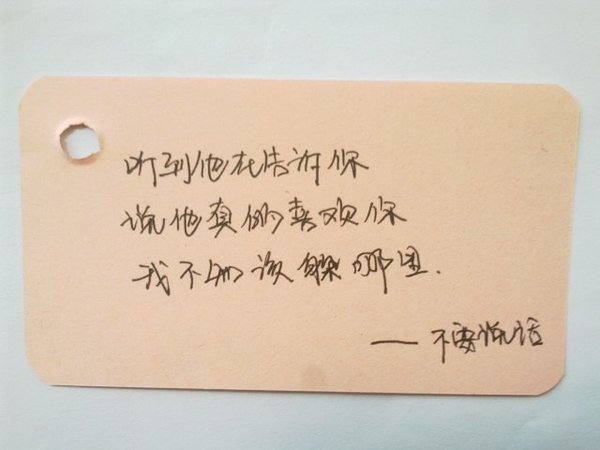 听到他在告诉你
说他真的喜欢你
我不知该躲哪里.
——不要说话